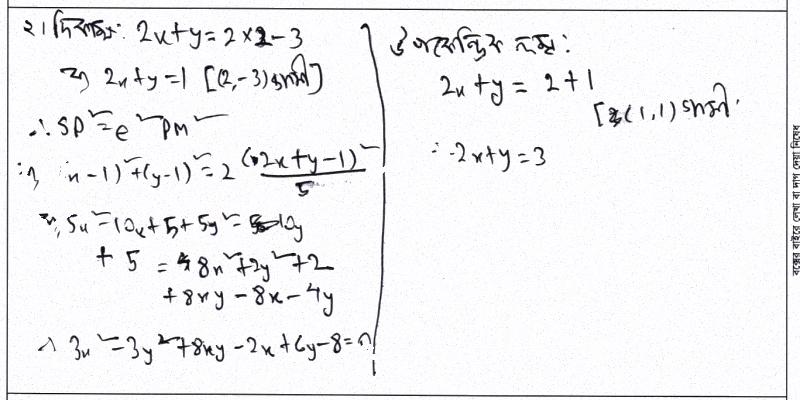 ২। দিকাক্ষ: 2x+y = 2×2-3
বা, 2x+y=1 [(2,-3) গামী]
∴ SP² = e² PM²
বা, x-1)² + (y-1)² = 2 (2x+y-1)²/5
বা, 5x²-10x+5+5y²-10y
+ 5 = 8x²+2y²+2
+8xy-8x-4y
∴ 3x²-3y²+8xy-2x+6y-8=0
উপকেন্দ্রিক লম্ব:
2x+y = 2+1
[(1,1) গামী
∴ 2x+y=3
বক্সের বাইরে লেখা বা দাগ দেয়া নিষেধ